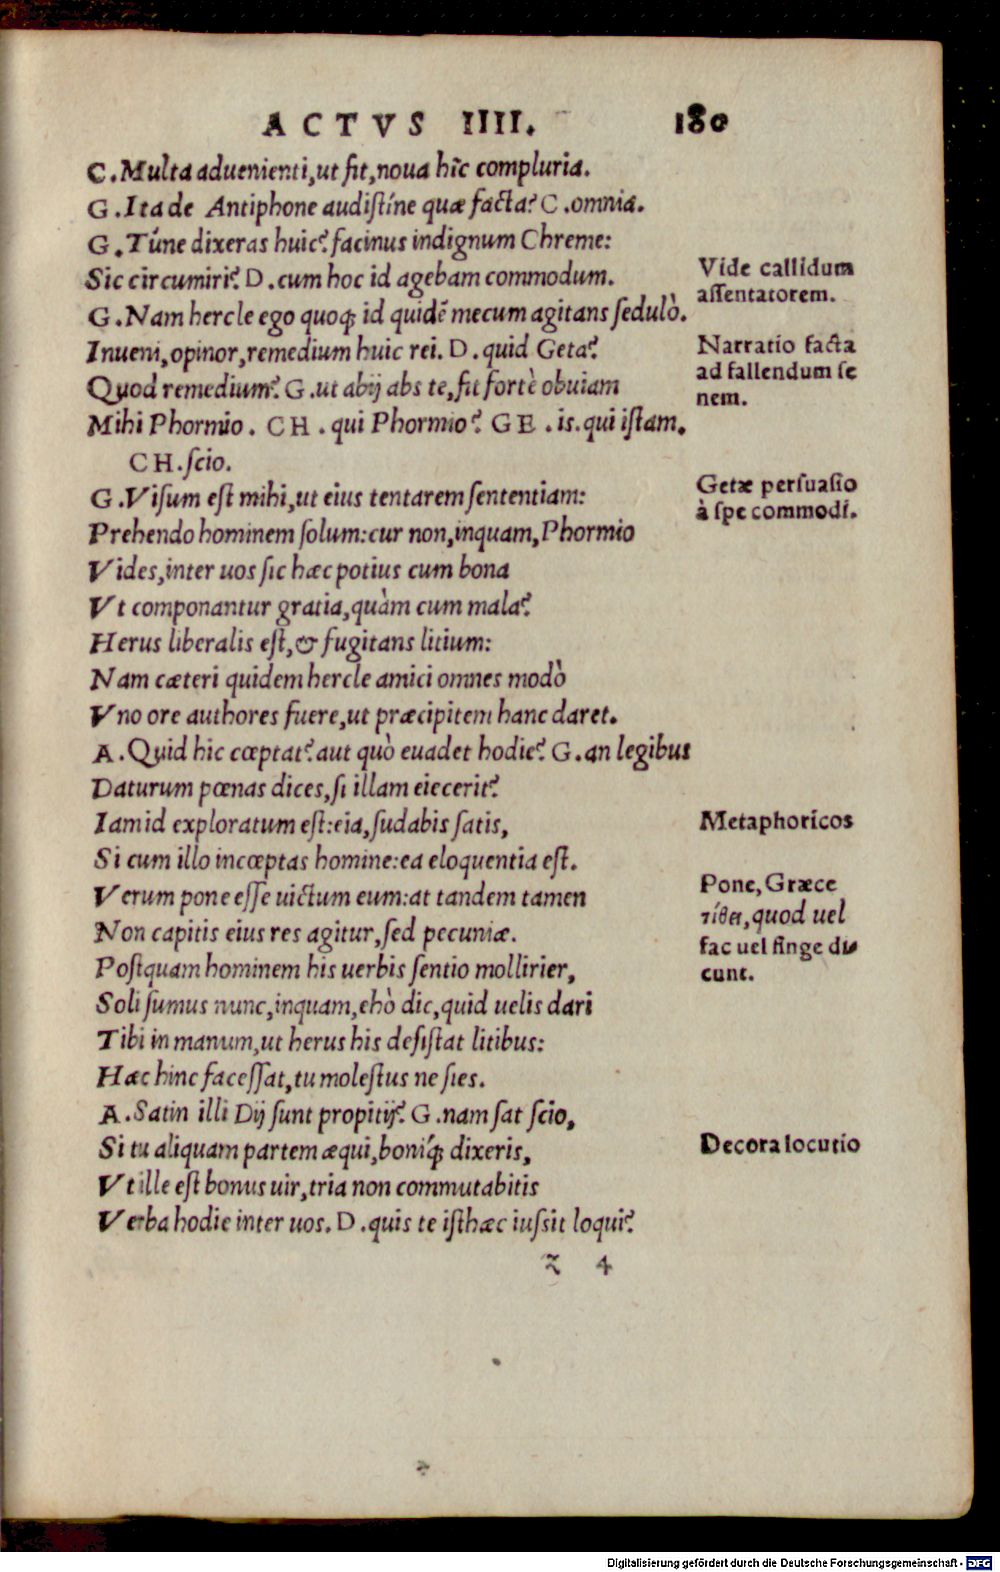 ACTVS IIII. 180
C. Multa aduenienti, ut fit, noua hîc compluria.
G. Ita de Antiphone audistíne quæ facta? C. omnia.
G. Túne dixeras huic? facinus indignum Chreme:
Sic circumiri? D. cum hoc id agebam commodum.
Vide callidum
assentatorem.
G. Nam hercle ego quoq; id quidẽ mecum agitans sedulò.
Inueni, opinor, remedium huic rei. D. quid Geta?
Quod remedium? G. ut abij abs te, fit fortè obuiam
Narratio facta
ad fallendum se
nem.
Mihi Phormio. CH. qui Phormio? GE. is. qui istam.
CH. scio.
G. Visum est mihi, ut eius tentarem sententiam:
Getæ persuasio
à spe commodi.
Prehendo hominem solum: cur non, inquam, Phormio
Vides, inter uos sic hæc potius cum bona
Vt componantur gratia, quàm cum mala?
Herus liberalis est, & fugitans litium:
Nam cæteri quidem hercle amici omnes modò
Vno ore authores fuere, ut præcipitem hanc daret.
A. Quid hic cœptat? aut quò euadet hodie? G. an legibus
Daturum pœnas dices, si illam eiecerit?
Iam id exploratum est: eia, sudabis satis,
Metaphoricos
Si cum illo incœptas homine: ea eloquentia est.
Verum pone esse uictum eum: at tandem tamen
Non capitis eius res agitur, sed pecuniæ.
Pone, Græce
τίθει, quod uel
fac uel finge di-
cunt.
Postquam hominem his uerbis sentio mollirier,
Soli sumus nunc, inquam, ehò dic, quid uelis dari
Tibi in manum, ut herus his desistat litibus:
Hæc hinc facessat, tu molestus ne sies.
A. Satin illi Dij sunt propitij? G. nam sat scio,
Si tu aliquam partem æqui, boniq́; dixeris,
Decora locutio
Vt ille est bonus uir, tria non commutabitis
Verba hodie inter uos. D. quis te isthæc iussit loqui?
z 4
Digitalisierung gefördert durch die Deutsche Forschungsgemeinschaft - DFG